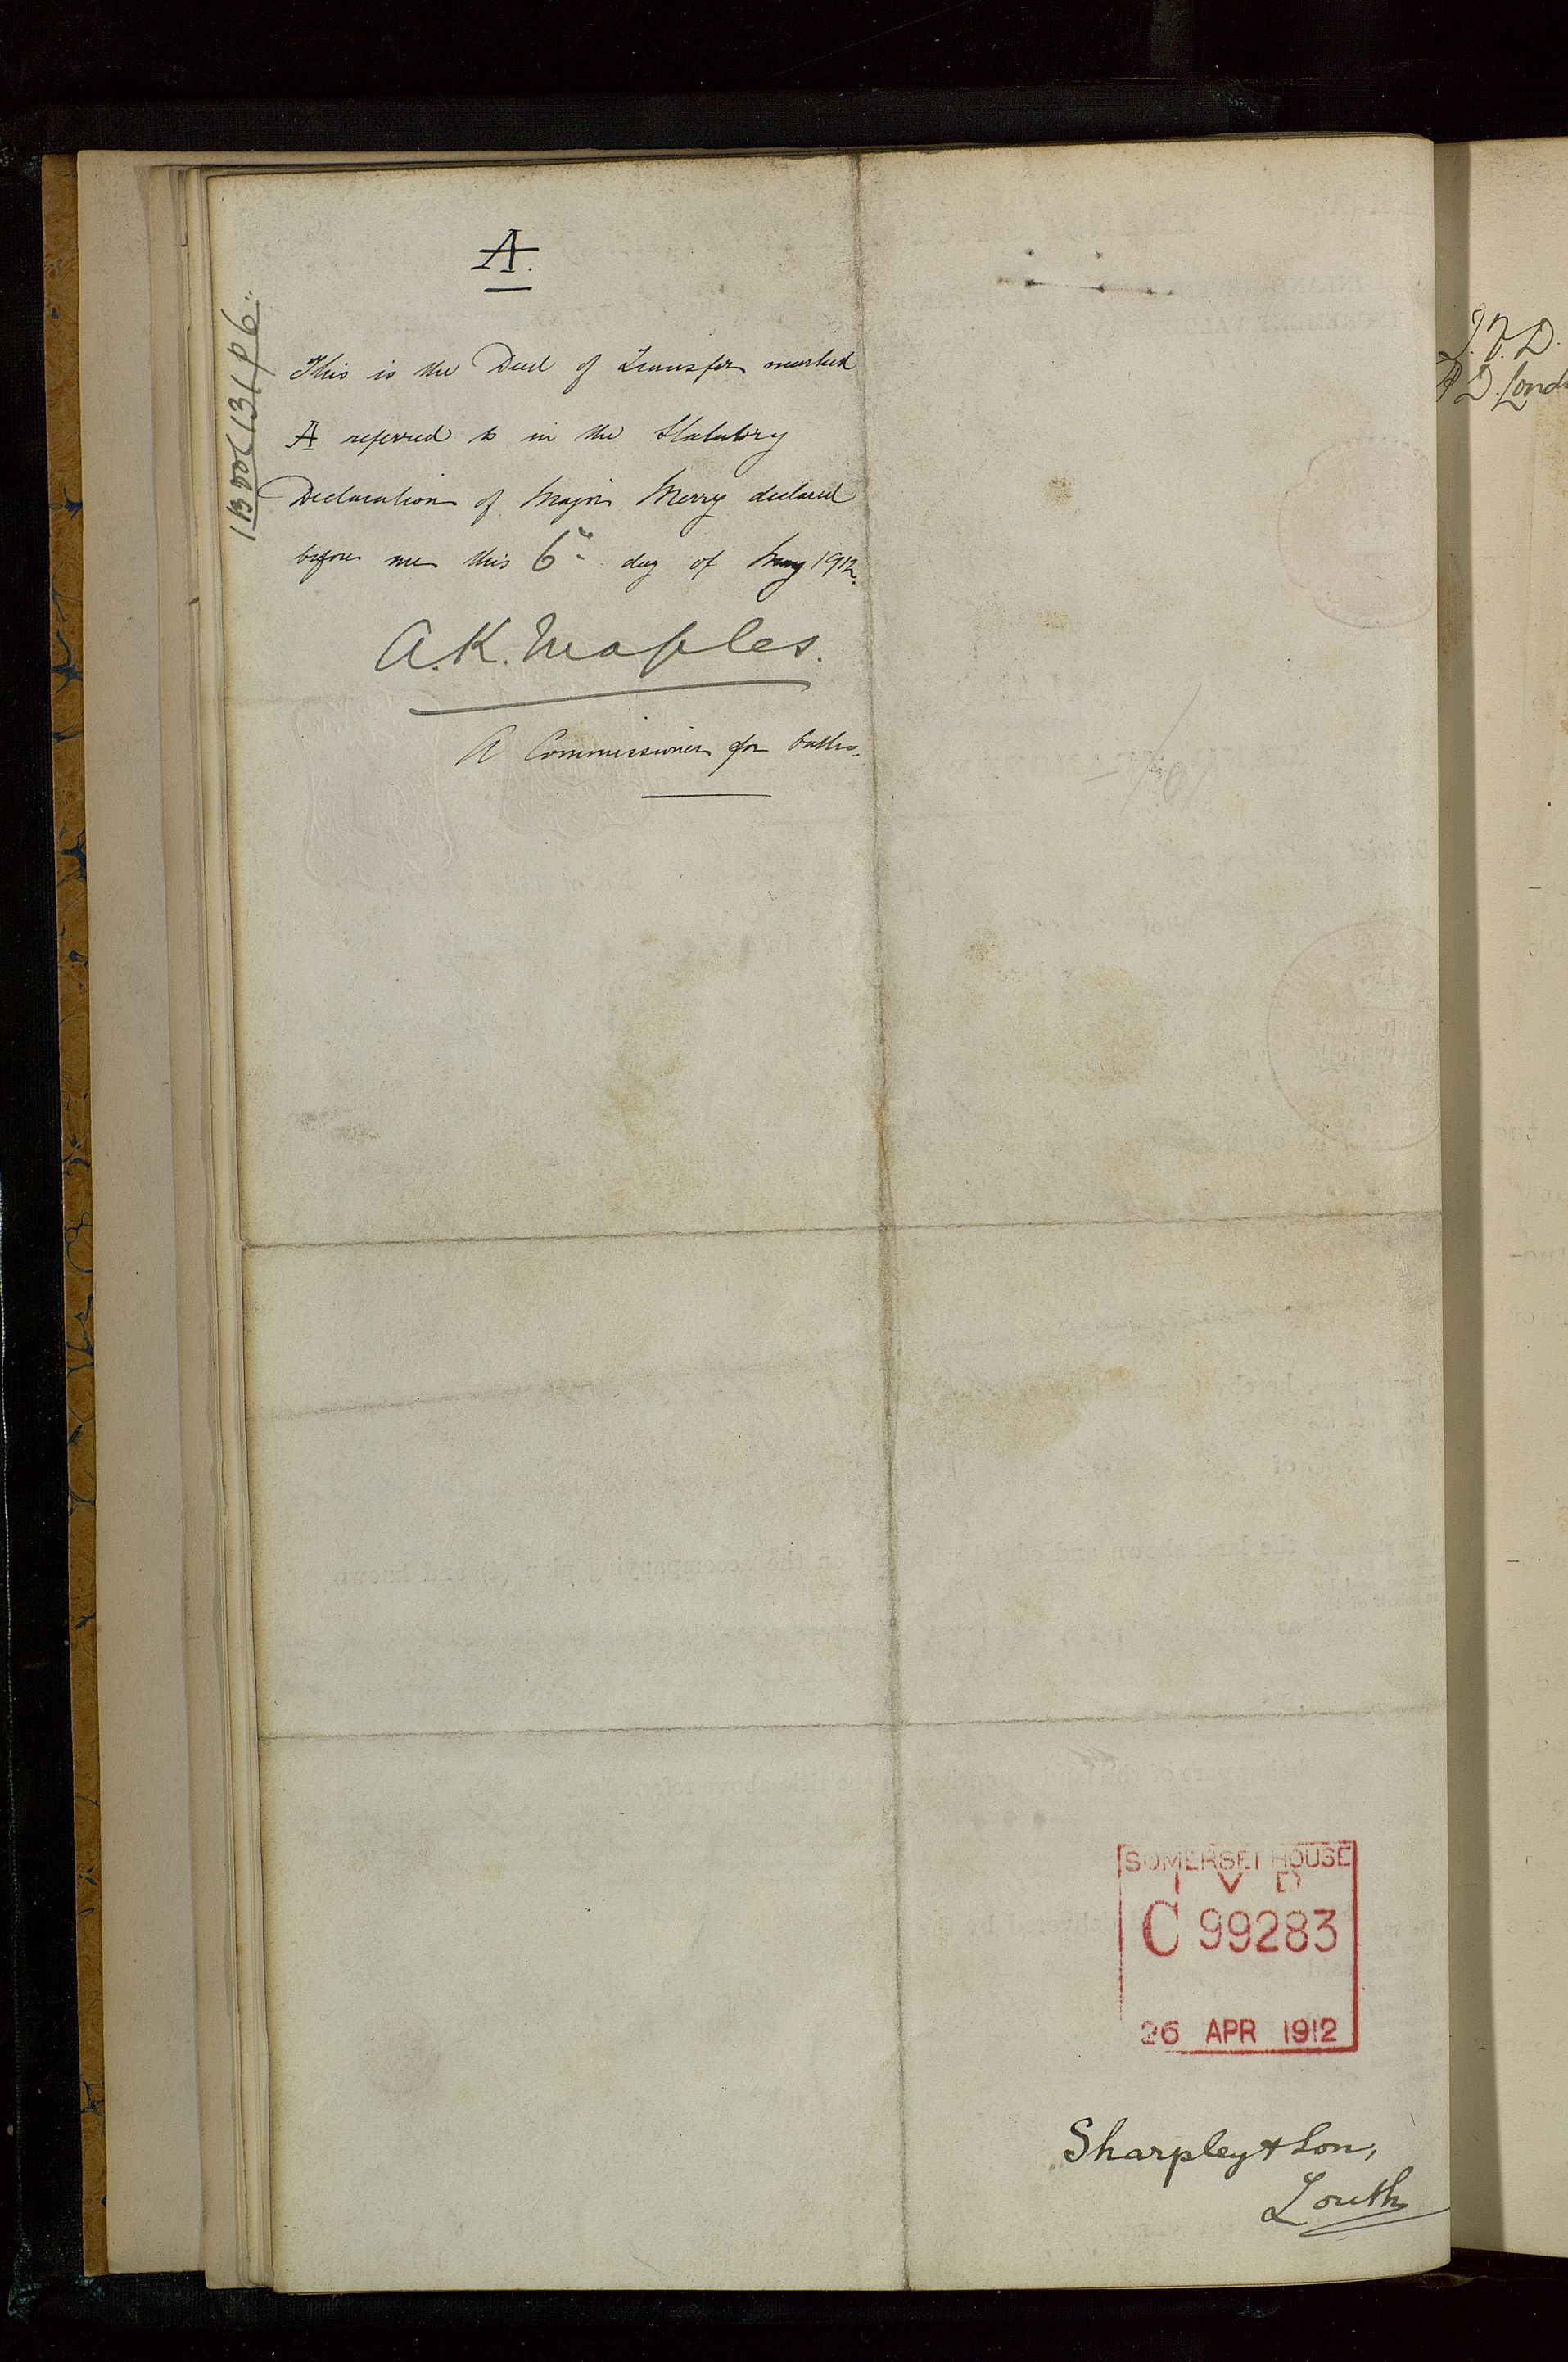 A.
This is the Deed of Transfer marked
A referred to in the Statutory
Declaration of Major Merry declared
before me this 6th day of May 1912.
A.K. Maples.
A Commissioner for Oaths.
SOMERSET HOUSE
I V D
C 99283
26 APR 1912
Sharpley & Son,
Louth